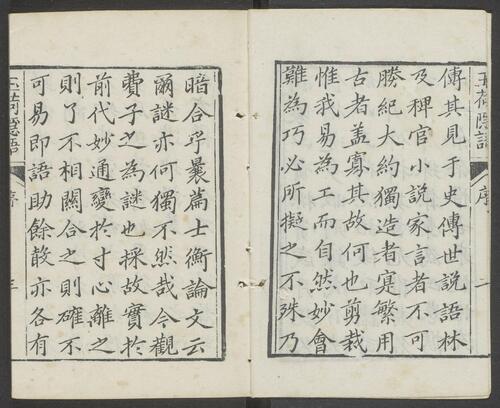 玉荷隱語
序
傳其見于史傳世說語林
及稗官小說家言者不可
勝紀大約獨造者寔繁用
古者蓋寡其故何也剪裁
惟我易為工而自然妙會
難為巧必所擬之不殊乃
暗合乎曩篇士衡論文云
爾謎亦何獨不然哉今觀
費子之為謎也採故實於
前代妙通變於寸心離之
則了不相關合之則確不
可易即語助餘散亦各有
玉荷隱語
序